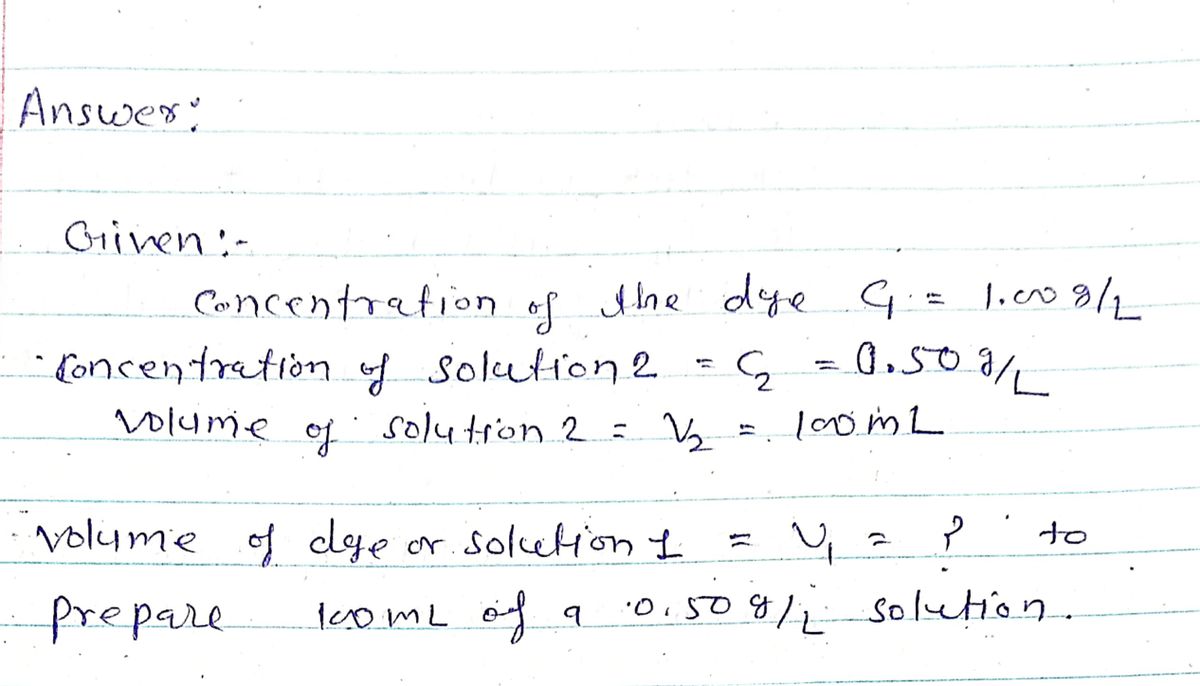 Answer:
Given :-
Concentration of the dye C₁ = 1.00 g/L
Concentration of solution 2 = C₂ = 0.50 g/L
Volume of solution 2 = V₂ = 100 mL
Volume of dye or solution 1 = V₁ = ? to
prepare 100 mL of a 0.50 g/L solution.